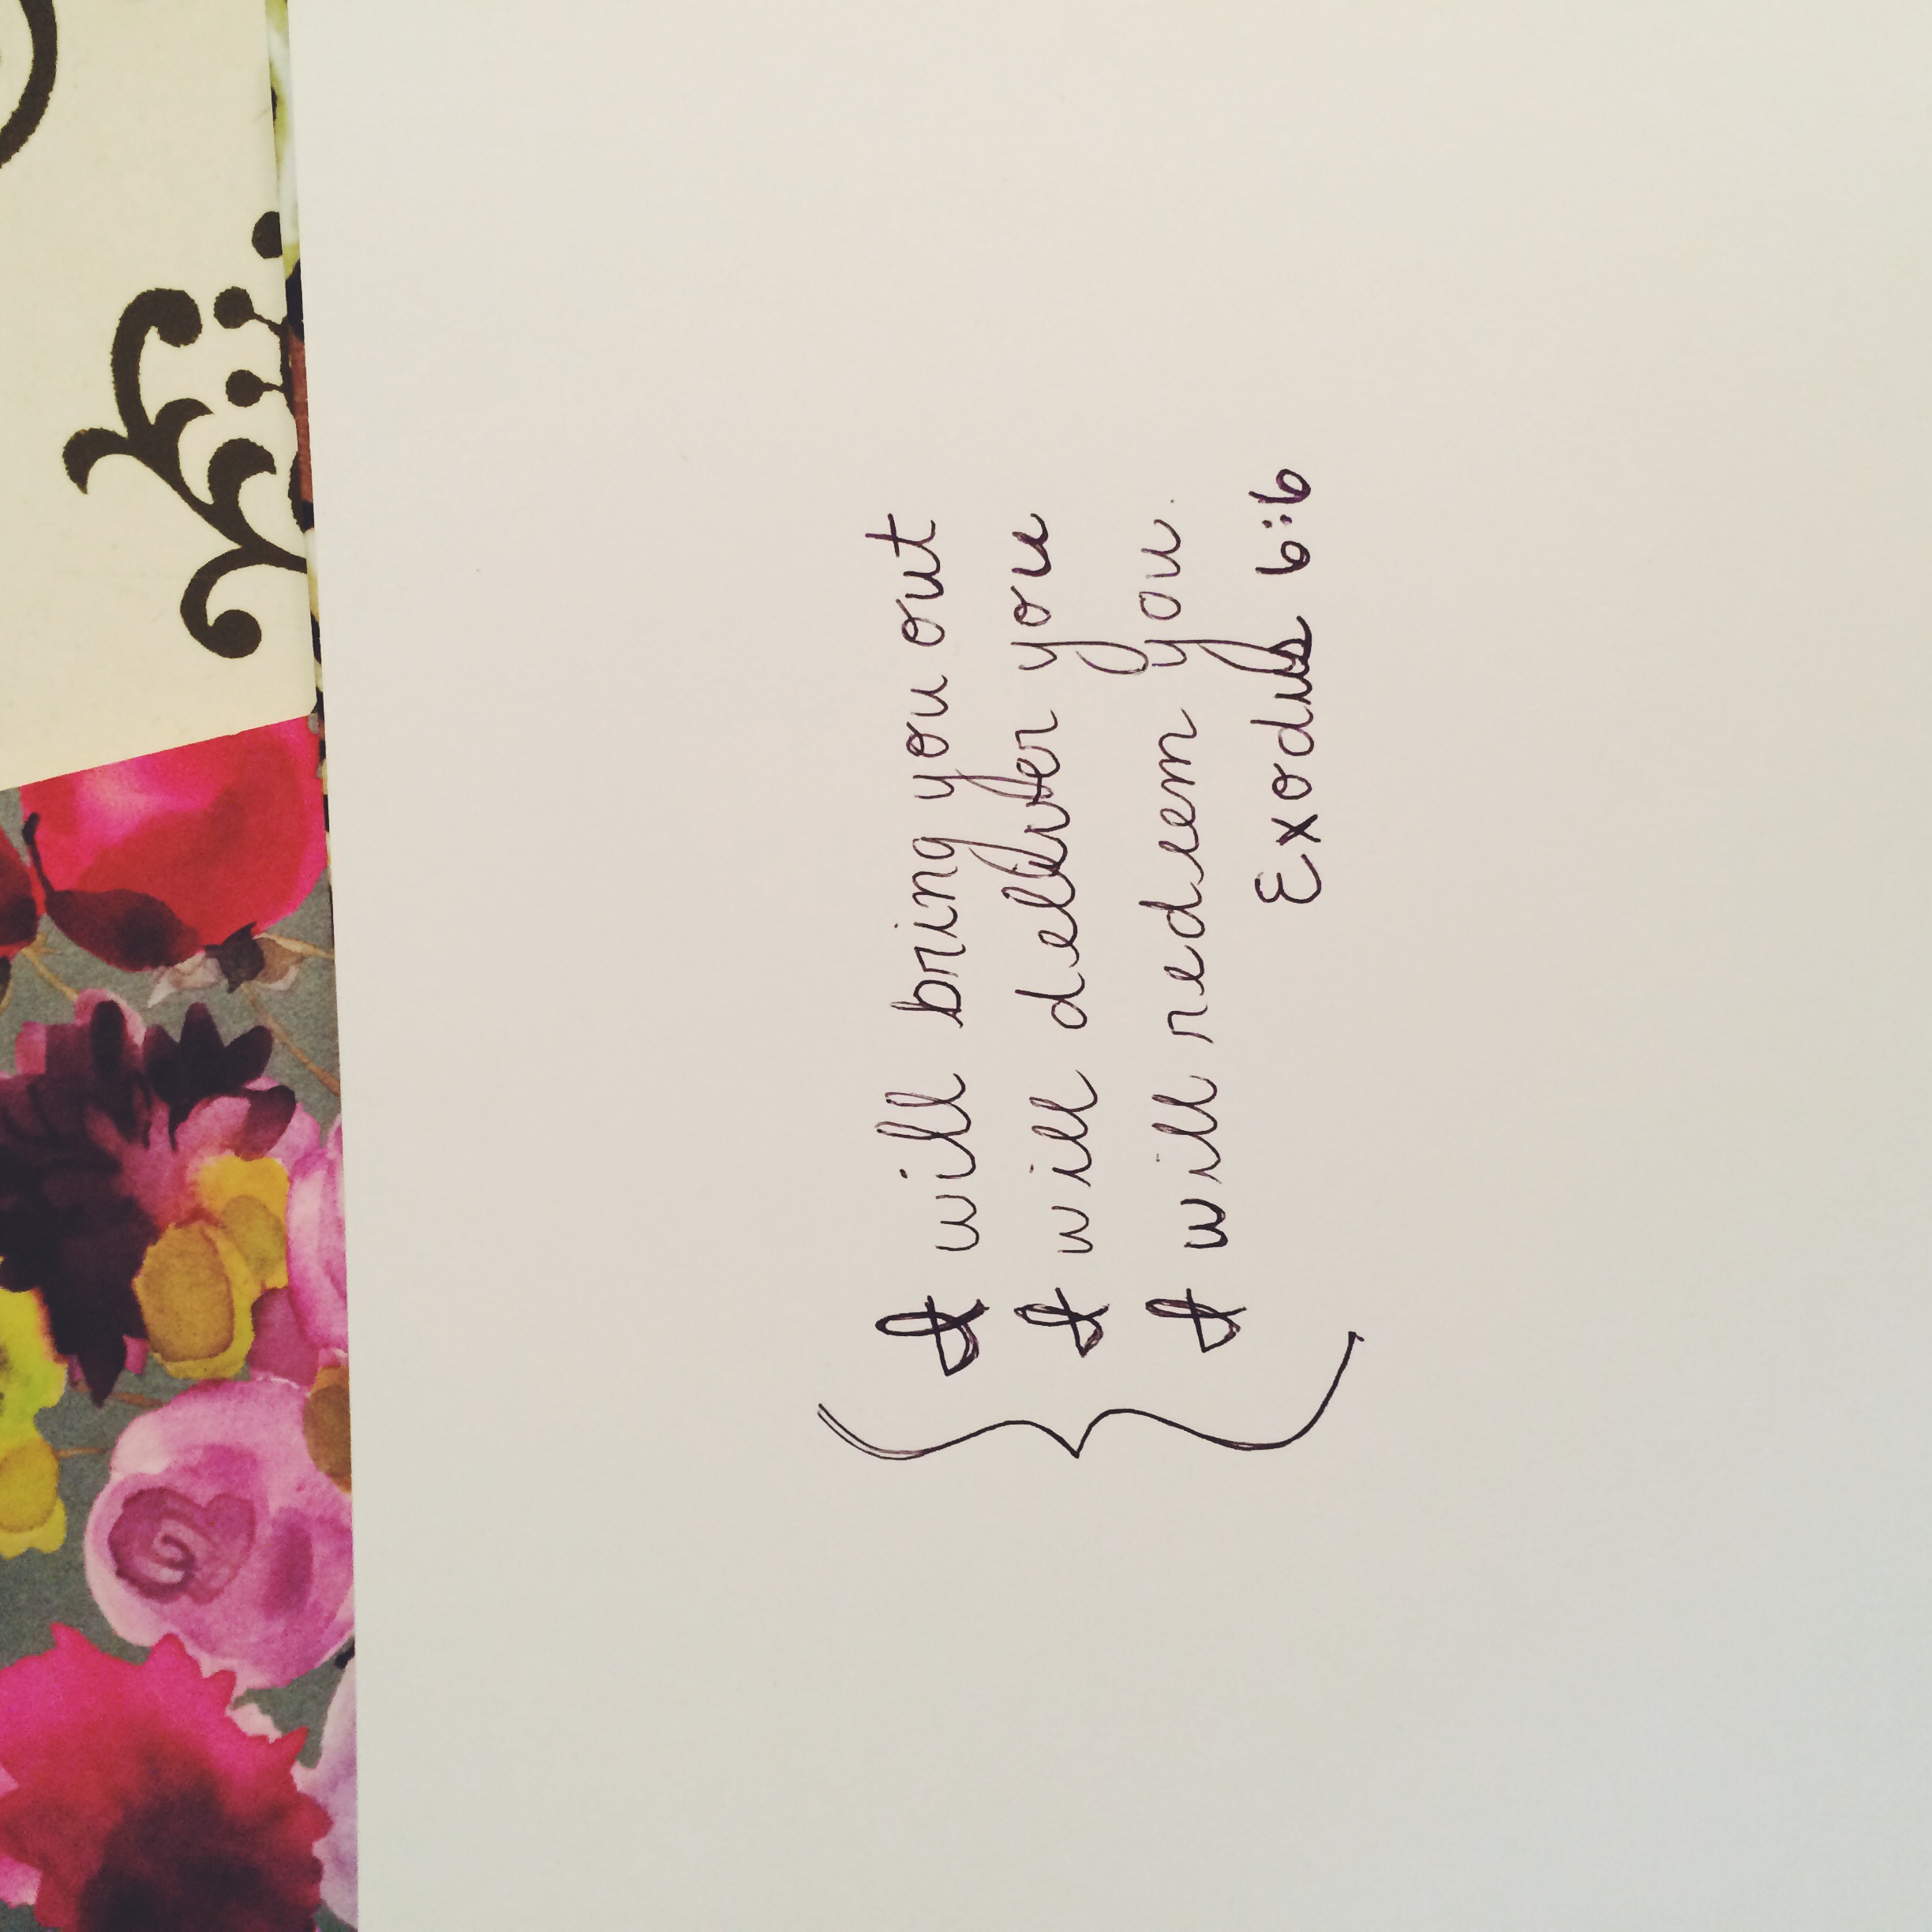 I will bring you out
I will deliver you
I will redeem you.
Exodus 6:6